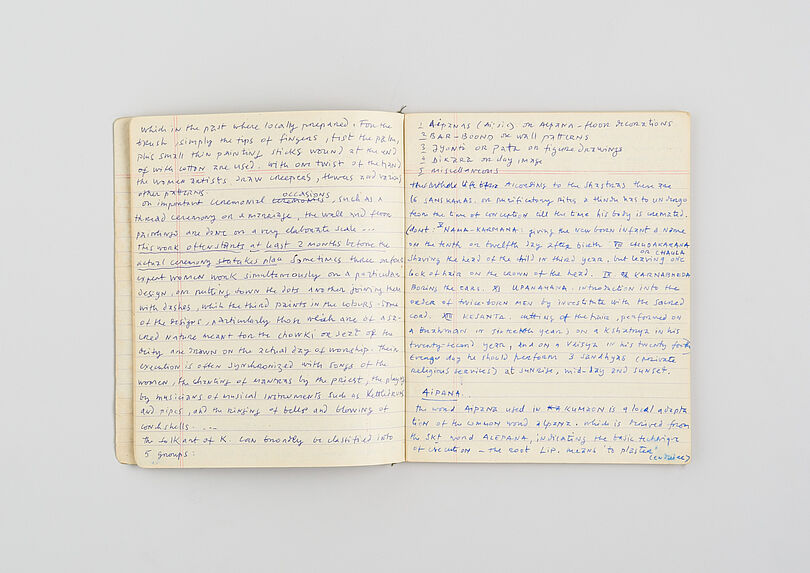 which in the past where locally prepared. For the
brush, simply the tips of fingers, fist the palm,
plus small thin painting sticks wound at the end
of with cotton are used. With one twist of the hand
the women artists draw creepers, flowers and various
other patterns.
OCCASIONS
On important ceremonial ceremonies, such as a
thread ceremony or a marriage, the wall and floor
paintings are done on a very elaborate scale ...
This work often starts at least 2 months before the
actual ceremony takes place. Some times three or four
expert women work simultaneously on a particular
design, one putting down the dots another joining them
with dashes, while the third paints in the colours. Some
of the designs, particularly those which are of a sa-
cred nature meant for the chowki or seat of the
deity are drawn on the actual day of worship. Their
execution is often synchronized with songs of the
women, the chanting of mantras by the priest, the playing
by musicians of musical instruments such as kettledrums
and pipes, and the ringing of bells and blowing of
conchshells. ...
The folk art of K. can broadly be classified into
5 groups:
1 AIPANAS or ALPANA - floor decorations
2 BAR-BOOND or wall patterns
3 JYONTI or PATA or figure drawings
4 DIKARA or clay image
5 miscellaneous
According to the shastras there are
16 SANSKARAS, or purificatory rites, a Hindu has to undergo
from the time of conception till the time his body is cremated.
NAMA-KARMANA: giving the new born infant a name
on the tenth or twelfth day after birth. CHUDAKARANA
OR CHAULA
shaving the head of the child in third year, but leaving one
lock of hair on the crown of the head. IX KARNABHEDA
Boring the ears. XI UPANAYANA. introduction into the
order of twice-born men by investiture with the sacred
cord. XII KESANTA. cutting of the hair, performed on
a Brahman in sixteenth year, on a Kshatrya in his
twenty-second year, and on a Vaisya in his twenty forth
everyday he should perform 3 sandhyas (private
religious services) at sunrise, mid-day and sunset.
AIPANA.
the word AIPANA used in KUMAON is a local adapta
tion of the common word alpana. which is derived from
the SKT word ALEPANA, indicating the basic technique
of execution - the root LIP. means 'to plaster'